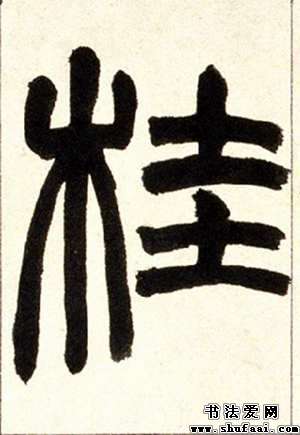 桂
书法爱网
www.shufaai.com